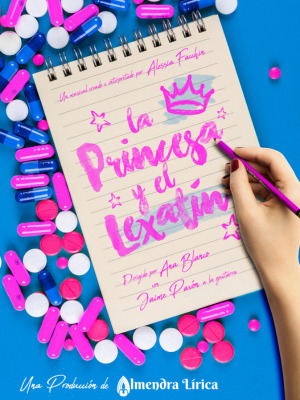 Un musical creado e interpretado por Alessia Facchin
la
Princesa
y el
Lexatín
Dirigido por Ana Blanco
con
Jaime Pavón a la guitarra
Una Producción de Almendra Lírica